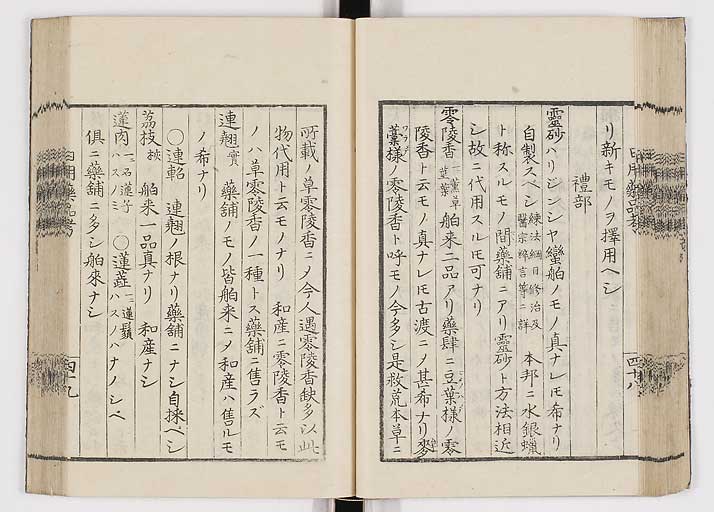 リ新キモノヲ擇用ヘシ
禮部
靈砂ハリジンシヤ蠻舶ノモノ真ナレ𪜈希ナリ
自製スベシ 煉法綱目修治及醫宗粹言等ニ詳 本邦ニ水銀蠟
ト称スルモノ間藥舗ニアリ靈砂ト方法相近
シ故ニ代用スル𪜈可ナリ
零陵香 一薫草 舶来二品アリ藥肆ニ豆葉様ノ零
陵香ト云モノ真ナレ𪜈古渡ニメ甚希ナリ麥
藁様ノ零陵香ト呼モノ今多シ是救荒本草ニ
四十八
所載ノ草零陵香ニメ今人遇零陵香缺多以此
物代用ト云モノナリ 和産ニ零陵香ト云モ
ノハ草零陵香ノ一種トス藥舗ニ售ラズ
連翹 實 藥舗ノモノ皆舶来ニメ和産ハ售ルモ
ノ希ナリ
〇連軺 連翹ノ根ナリ藥舗ニナシ自採ベシ
茘枝 核 舶来一品真ナリ 和産ナシ
蓮肉 一名蓮子 ハスノミ 〇蓮蘂 一蓮鬚 ハスノハナノシベ
俱ニ藥舗ニ多シ舶來ナシ
日用藥品考
四十九